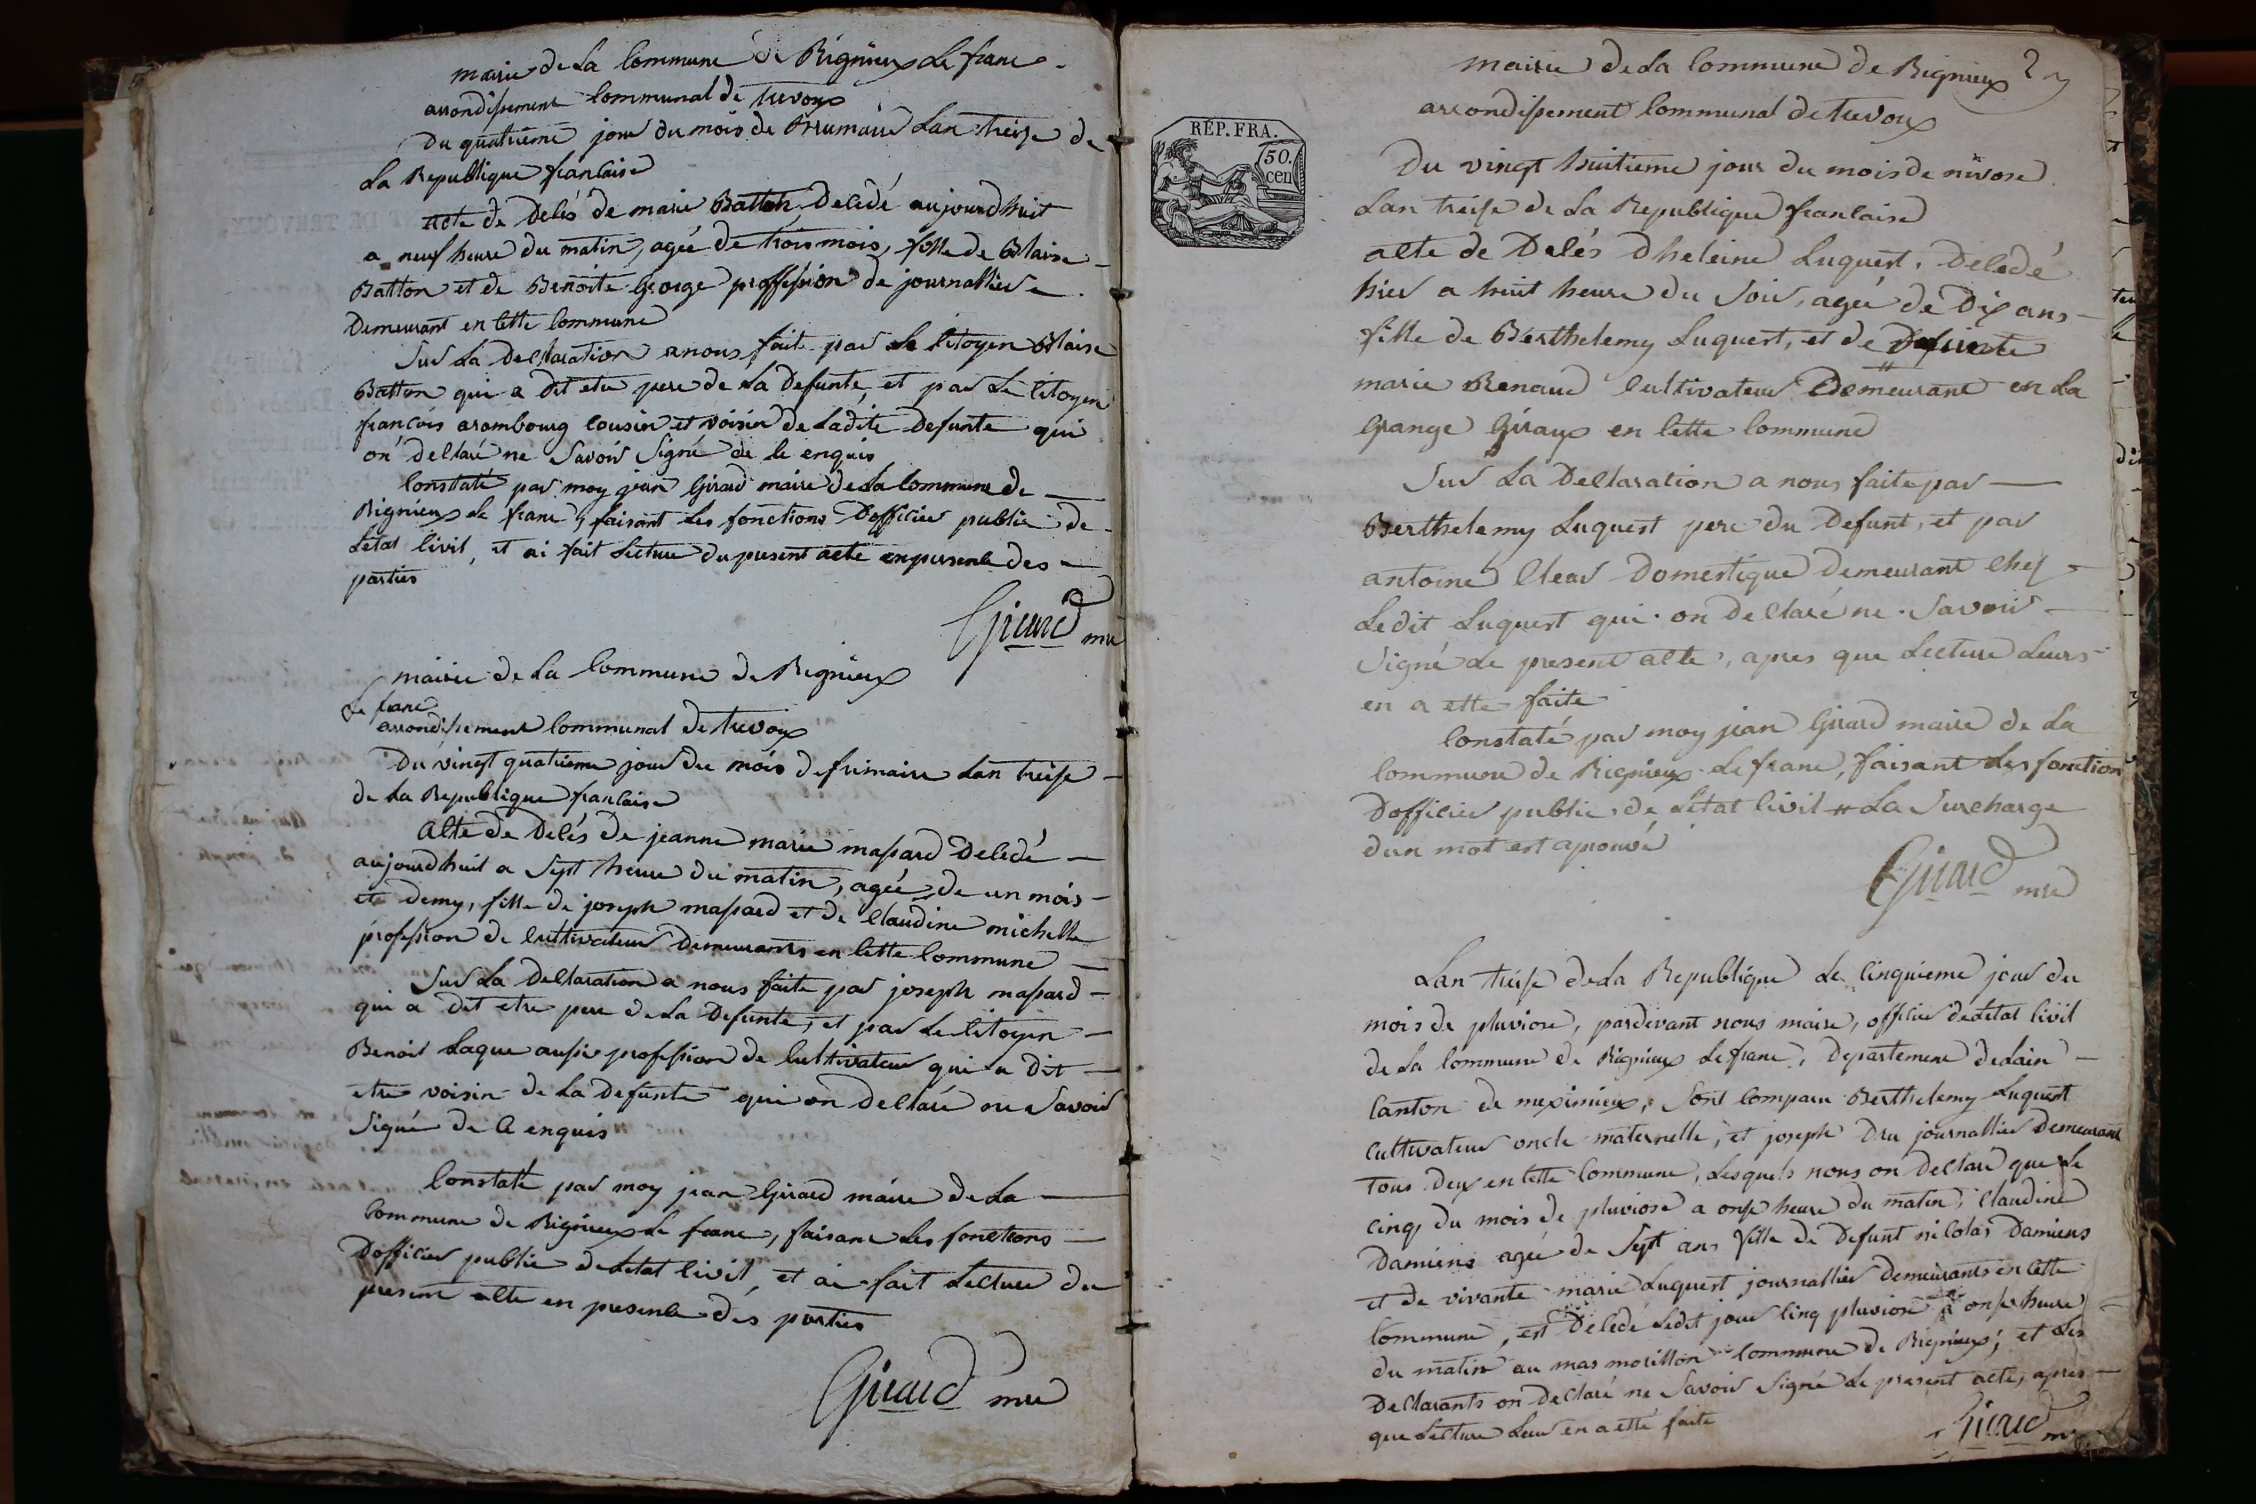 mairie de La Commune de Rignieux Le franc
arrondissement Communal de trevoux
Du quatrieme jour du mois de Brumaire Lan treize de
La Republique francaise
Acte de Deces de marie Batton Decedé aujourdhuit
a neuf heure du matin, agée de trois mois, fille de Blaise
Batton et de Benoite George proffession de journallier
Demeurant en cette Commune
Sur La Declaration a nous fait par Le Citoyen Blaise
Batton qui a Dit etre pere de La Defunte, et par Le Citoyen
francois arambourg cousin et voisin de Ladite Defunte qui
on declaré ne Savoir Signé de ce enquis
Constaté par moy jean Girard maire de La Commune de
Rignieux Le franc, faisant Les fonctions Dofficier public de
Letat Civil, et ai fait Lecture du present acte en presence des
parties
Girard mre
mairie de La Commune de Rignieux
Le franc
arrondissement Communal de trevoux
Du vingt quatrieme jour du mois de frimaire Lan treise
de La Republique francaise
Acte de Deces de jeanne marie massard Decedé
aujourdhuit a Sept heure du matin, agée de un mois
et demy, fille de joseph massard et de Claudine michelle
profession de Cultivateur Demeurants en Cette Commune
Sur La Declaration a nous faite par joseph massard
qui a Dit etre pere de La Defunte, et par Le Citoyen
Benoit Laque aussi profession de Cultivateur qui a Dit
etre voisin de La Defunte qui on Declaré ne Savoir
Signé de Ce enquis
Constaté par moy jean Girard maire de La
Commune de Rignieux Le franc, faisant Les fonctions
Dofficier public de Letat Civil, et ai fait Lecture du
present acte en presence des parties
Girard mre
mairie de La Commune de Rignieux
arrondissement Communal de trevoux
REP. FRA.
50.
cen
Du vingt huitieme jour du mois de nivose
Lan treise de La Republique francaise
acte de Deces Dheleine Luquest, Decedé
hier a huit heure du Soir, agée de Dix ans
fille de Berthelemy Luquest, et de Defunte
marie Renaud Cultivateur Demeurant en La
Grange Giraux en Cette Commune
Sur La Declaration a nous faite par
Berthelemy Luquest pere du Defunt, et par
antoine Clear Domestique Demeurant chez
Ledit Luquest qui on Declaré ne Savoir
Signé Le present acte, apres que Lecture Leurs
en a etté faite
Constaté par moy jean Girard maire de La
Commune de Rignieux Le franc, faisant Les fonction
Dofficier public de Letat Civil # La Surcharge
dun mot est aprouvé
Girard mre
Lan treise de La Republique Le Cinquieme jour du
mois de pluviose, pardevant nous maire, officier de Letat Civil
de La Commune de Rignieux Le franc, Departement de Lain
Canton de meximieux, Sont Comparu Berthelemy Luquest
Cultivateur oncle maternelle, et joseph Dru journallier Demeurant
tous deux en Cette Commune, Lesquels nous on Declaré que Le
cinq du mois de pluviose a onse heure du matin, Claudine
Damiens agée de Sept ans fille de Defunt nicolas Damiens
et de vivante marie Luquest journallier Demeurants en Cette
Commune, est Decedé Ledit jour Cinq pluviose a onse heure
du matin au mas morillon Commune de Rignieux; et Les
Declarants on Declaré ne Savoir Signé Le present acte, apres
que Lecture Leur en a etté faite
Girard mre